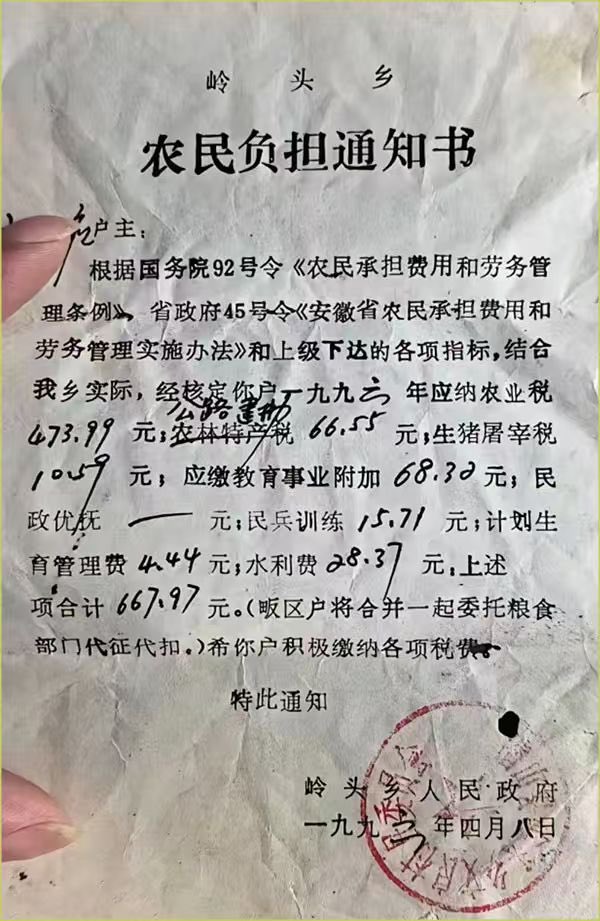 岭头乡
农民负担通知书
户主：
根据国务院92号令《农民承担费用和劳务管
理条例》、省政府45号令《安徽省农民承担费用和
劳务管理实施办法》和上级下达的各项指标，结合
我乡实际，经核定你户一九九六年应纳农业税
公路建勤
473.99元；农林特产税66.55元；生猪屠宰税
10.59元；应缴教育事业附加68.32元；民
政优抚——元；民兵训练15.71元；计划生
育管理费4.44元；水利费28.37元，上述
项合计667.97元。（畈区户将合并一起委托粮食
部门代征代扣。）希你户积极缴纳各项税费。
特此通知
岭头乡人民政府
一九九 年四月八日